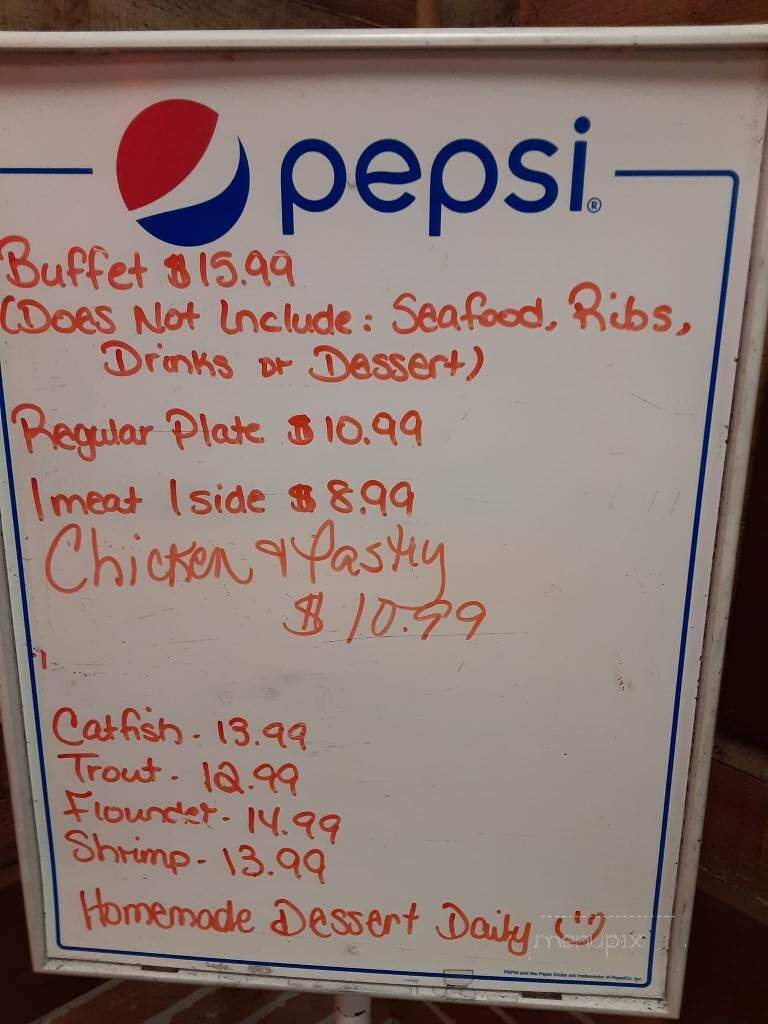 pepsi®
Buffet $15.99
(Does Not Include: Seafood, Ribs,
Drinks or Dessert)
Regular Plate $10.99
1 meat 1 side $8.99
Chicken & Pastry
$10.99
Catfish - 13.99
Trout - 12.99
Flounder - 14.99
Shrimp - 13.99
Homemade Dessert Daily
menupix
PEPSI and the Pepsi Globe are trademarks of PepsiCo, Inc.